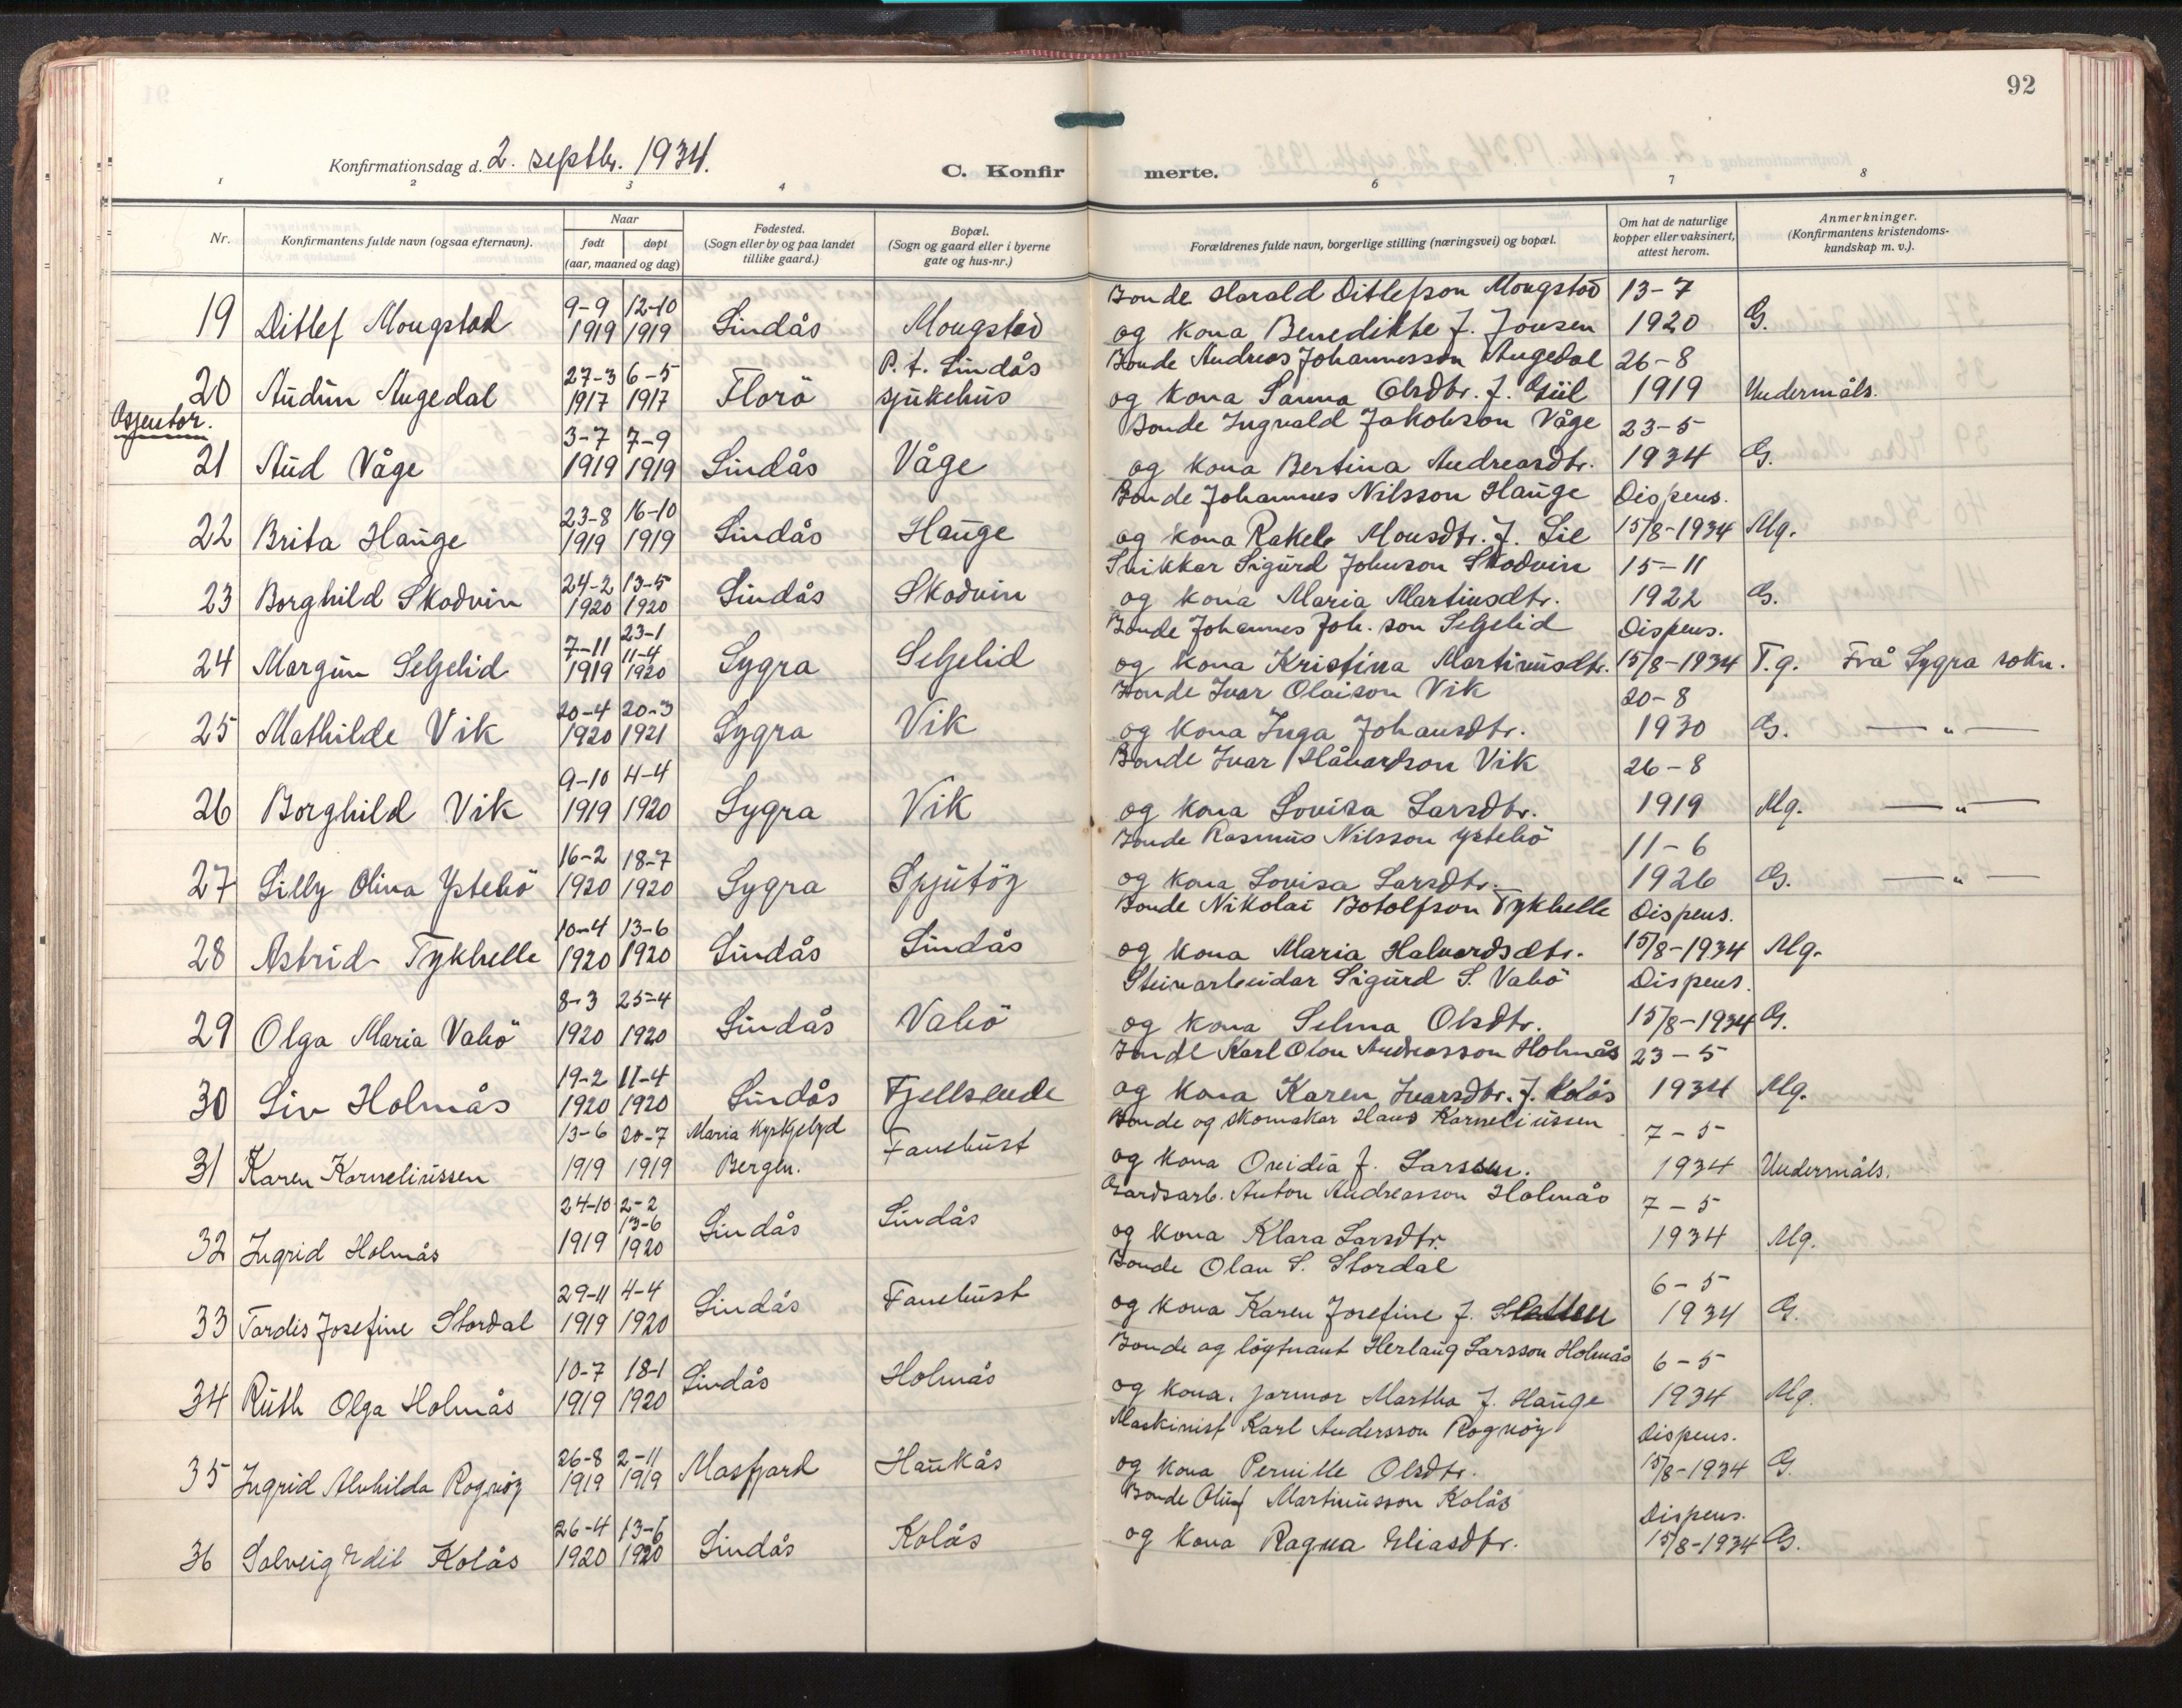 92
Konfirmationsdag d. 2. septbr. 1934.
C. Konfirmerte.
1 2 3 4 5 6 7 8
Nr.
Konfirmantens fulde navn (ogsaa efternavn).
Naar
født døpt
(aar, maaned og dag)
Fødested.
(Sogn eller by og paa landet
tillike gaard.)
Bopæl.
(Sogn og gaard eller i byerne
gate og hus-nr.)
Forældrenes fulde navn, borgerlige stilling (næringsvei) og bopæl.
Om hat de naturlige
kopper eller vaksinert,
attest herom.
Anmerkninger.
(Konfirmantens kristendoms-
kundskap m. v.).
9-9 12-10 Bonde Harald Ditlefson Mongstad 13-7
19 Ditlef Mongstad 1919 1919 Lindås Mongstad og kona Benedikte f. Jonsen 1920 G.
27-3 6-5 P.t. Lindås Bonde Andreas Johannesson Augedal 26-8
20 Audun Augedal 1917 1917 Florö sjukehus og kona Sanna Olsdtr. f. Giil 1919 Undermåls.
Gjentor.
3-7 7-9 Bonde Ingvald Jakobson Våge 23-5
21 Aud Våge 1919 1919 Lindås Våge og kona Bertina Andreasdtr. 1934 G.
23-8 16-10 Bonde Johannes Nilsson Hauge Dispens.
22 Brita Hauge 1919 1919 Lindås Hauge og kona Rakel Monsdtr. f. Lie 15/8-1934 Mg.
24-2 13-5 Snikkar Sigurd Johnson Skodvin 15-11
23 Borghild Skodvin 1920 1920 Lindås Skodvin og kona Maria Martinsdtr. 1922 G.
7-11 23-1 11-4 Bonde Johannes Joh. son Seljelid Dispens.
24 Margun Seljelid 1919 1920 Lygra Seljelid og kona Kristina Martinusdtr. 15/8-1934 T.g. Frå Lygra sokn.
20-4 20-3 Bonde Ivar Olaison Vik 20-8
25 Mathilde Vik 1920 1921 Lygra Vik og kona Inga Johansdtr. 1930 G. — " —
9-10 4-4 Bonde Ivar Håvardson Vik 26-8
26 Borghild Vik 1919 1920 Lygra Vik og kona Lovisa Larsdtr. 1919 Mg. — " —
16-2 18-7 Bonde Rasmus Nilsson Ystebö 11-6
27 Lilly Olina Ystebö 1920 1920 Lygra Spjutöy og kona Lovisa Larsdtr. 1926 G. — " —
10-4 13-6 Bonde Nikolai Botolfson Tykhelle Dispens.
28 Astrid Tykhelle 1920 1920 Lindås Lindås og kona Maria Halvardsdtr. 15/8-1934 Mg.
8-3 25-4 Steinarbeidar Sigurd S. Vabö Dispens.
29 Olga Maria Vabö 1920 1920 Lindås Vabö og kona Selma Olsdtr. 15/8-1934 G.
19-2 11-4 Bonde Karl Olau Andreasson Holmås 23-5
30 Liv Holmås 1920 1920 Lindås Fjellsende og kona Karen Ivarsdtr. f. Kolås 1934 Mg.
13-6 20-7 Maria Kyrkjelyd Bonde og skomakar Hans Karneliussen 7-5
31 Karen Korneliussen 1919 1919 Bergen. Fanebust og kona Ovidia f. Larssen. 1934 Undermåls.
24-10 2-2 13-6 Gardsarb. Anton Andreasson Holmås 7-5
32 Ingrid Holmås 1919 1920 Lindås Lindås og kona Klara Larsdtr. 1934 Mg.
29-11 4-4 Bonde Olav S. Stordal 6-5
33 Tordis Josefine Stordal 1919 1920 Lindås Fanebust og kona Karen Josefine f. 1934 G.
10-7 18-1 Bonde og löytnant Herlaug Larsson Holmås 6-5
34 Ruth Olga Holmås 1919 1920 Lindås Holmås og kona, jormor Martha f. Hauge 1934 Mg.
26-8 2-11 Maskinist Karl Andersson Rognöy Dispens.
35 Ingrid Alvhilda Rognöy 1919 1919 Masfjord Haukås og kona Pernille Olsdtr. 15/8-1934 G.
26-4 13-6 Bonde Oluf Martinusson Kolås Dispens.
36 Solveig Edit Kolås 1920 1920 Lindås Kolås og kona Ragna Eliasdtr. 15/8-1934 G.